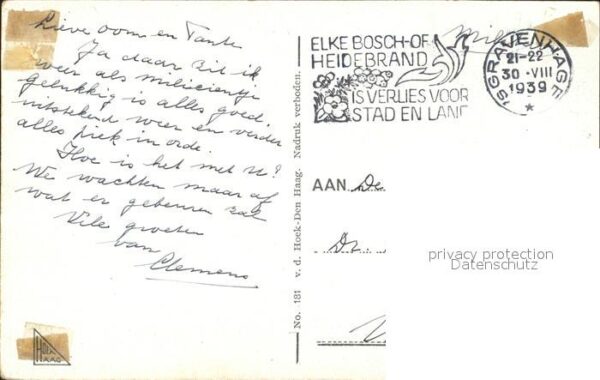 Lieve oom en Tante
Ja daar zit ik
weer als milicientje
gelukkig is alles goed
uitstekend weer en verder
alles piek in orde.
Hoe is het met U?
We wachten maar af
wat er gebeuren zal
Vele groeten
van
Clemens
HOEK
HAAG
No. 181 v. d. Hoek-Den Haag. Nadruk verboden.
ELKE BOSCH-OF
HEIDEBRAND
IS VERLIES VOOR
STAD EN LAND
'S GRAVENHAGE
21-22
30 · VIII
1939
*
AAN De
Dr.
privacy protection
Datenschutz